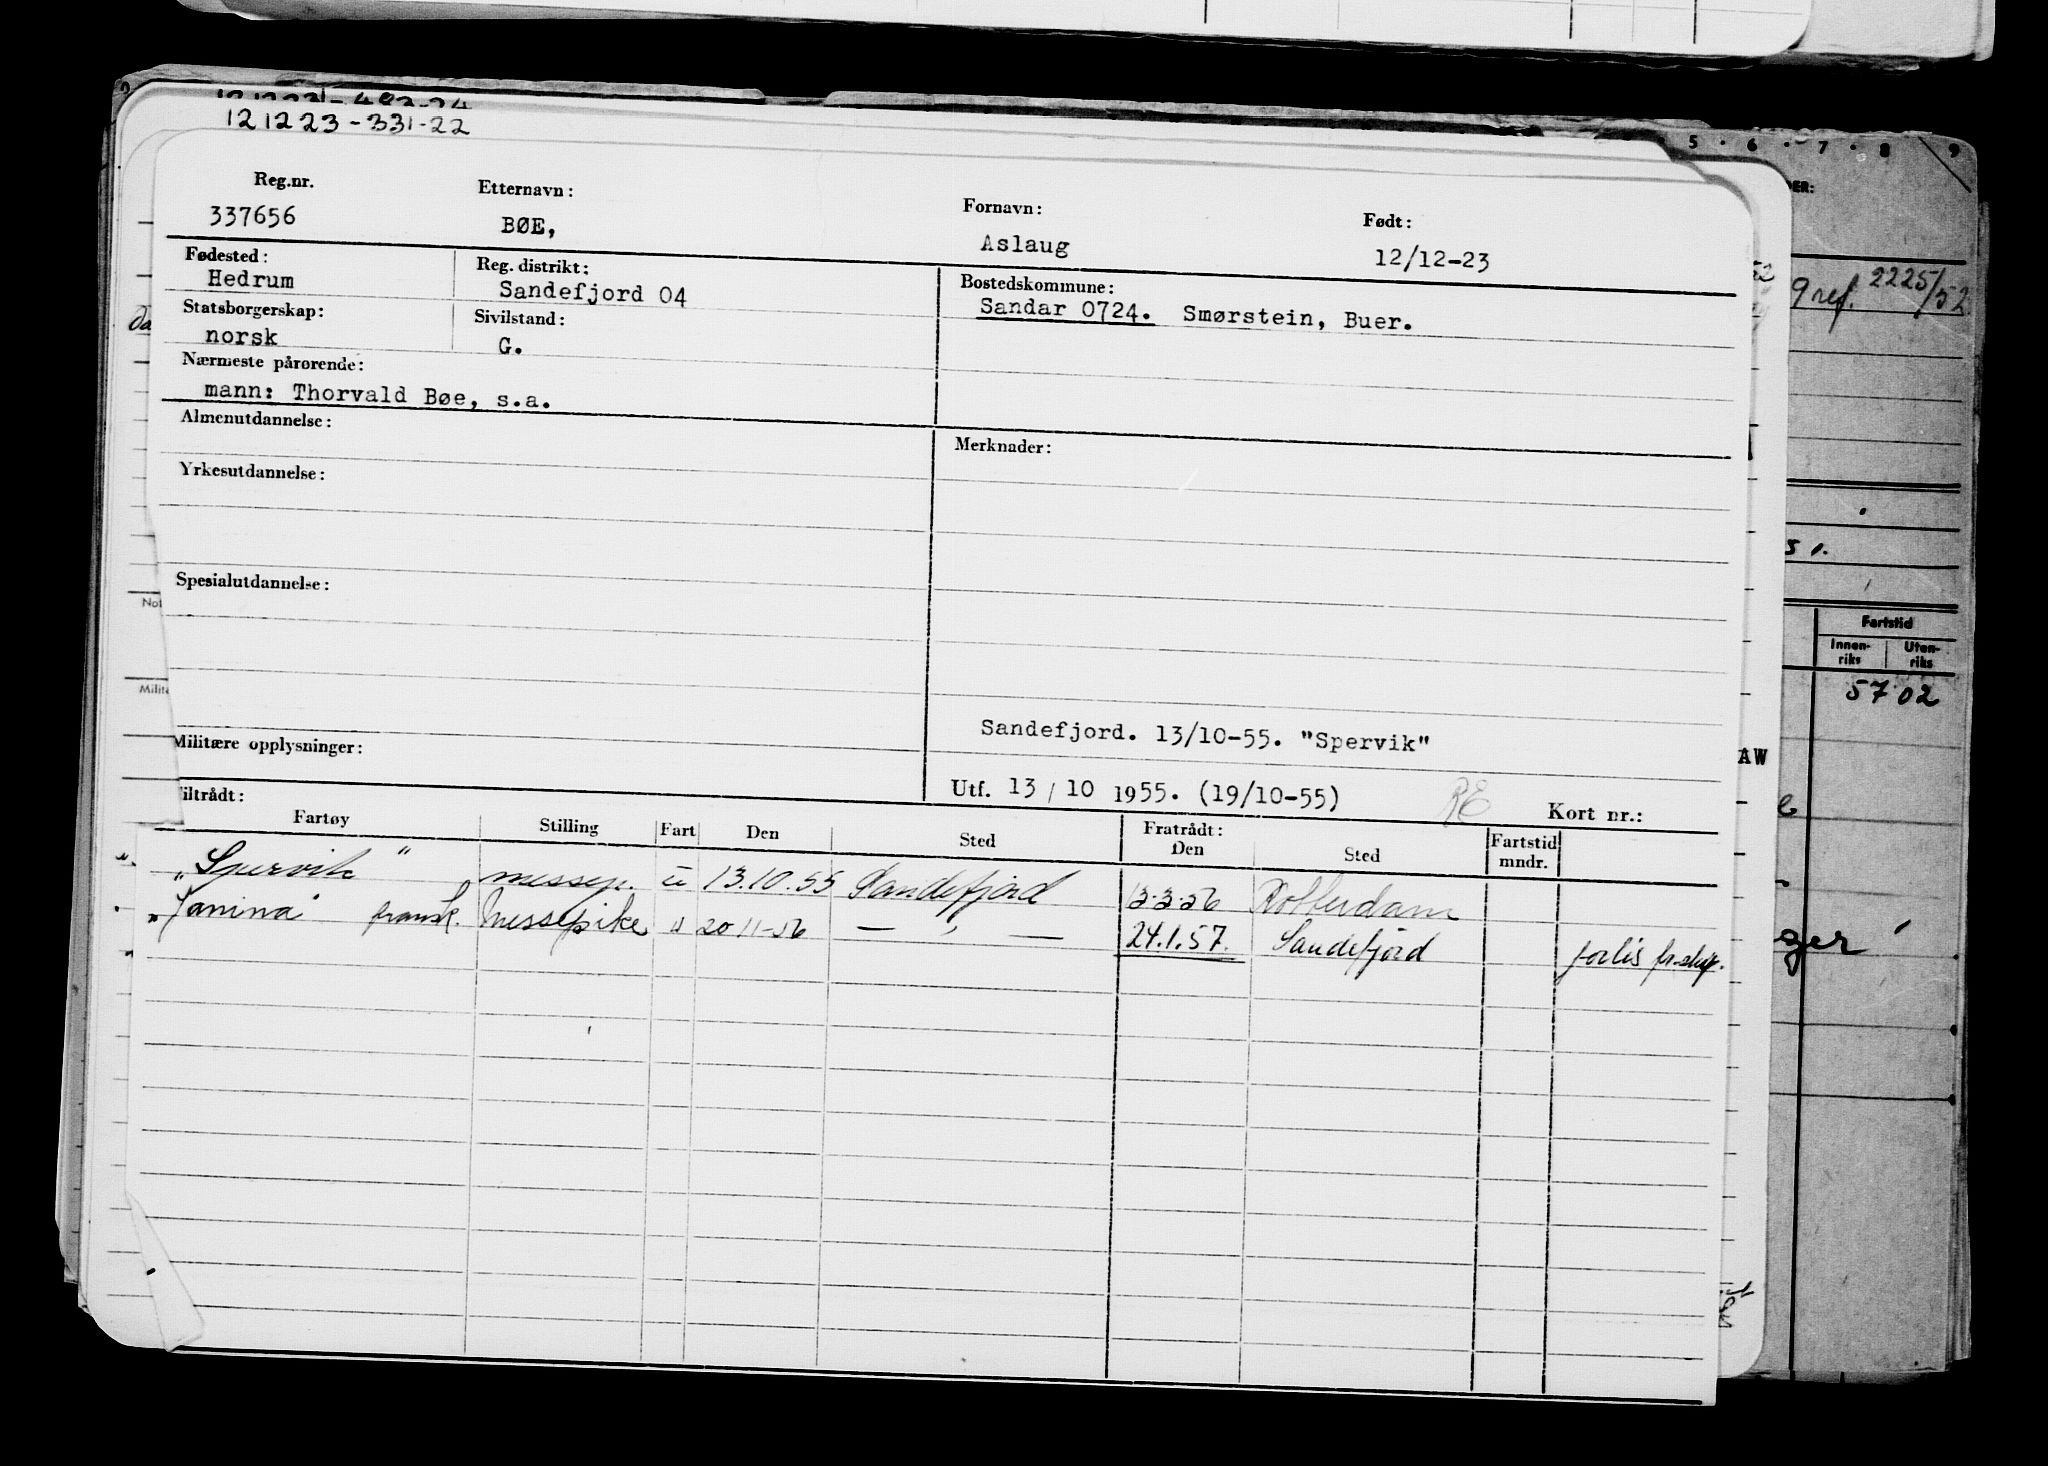 121223-331-22
5 · 6 · 7 · 8 9
Reg.nr. Etternavn: Fornavn: Født:
337656 BØE, Aslaug 12/12-23
Fødested: Reg. distrikt: Bostedskommune:
Hedrum Sandefjord 04 Sandar 0724. Smørstein, Buer.
Statsborgerskap: Sivilstand:
norsk G.
Nærmeste pårørende:
mann: Thorvald Bøe, s.a.
Almenutdannelse: Merknader:
Yrkesutdannelse:
Spesialutdannelse:
Sandefjord. 13/10-55. "Spervik"
Militære opplysninger:
Utf. 13/10 1955. (19/10-55) RE Kort nr.:
iltrådt: Fratrådt:
Fartøy Stilling Fart Den Sted Den Sted Fartstid mndr.
"Spervik" messep. u 13.10.55 Sandefjord 13-3-56 Rotterdam
"Janina" fransk. Messepike " 20 11-56 — " — 24.1.57. Sandefjord forlis fr.skip.
9 ref. 2225/52
Fartstid
Innen-riks Uten-riks
57 02
AW
ger